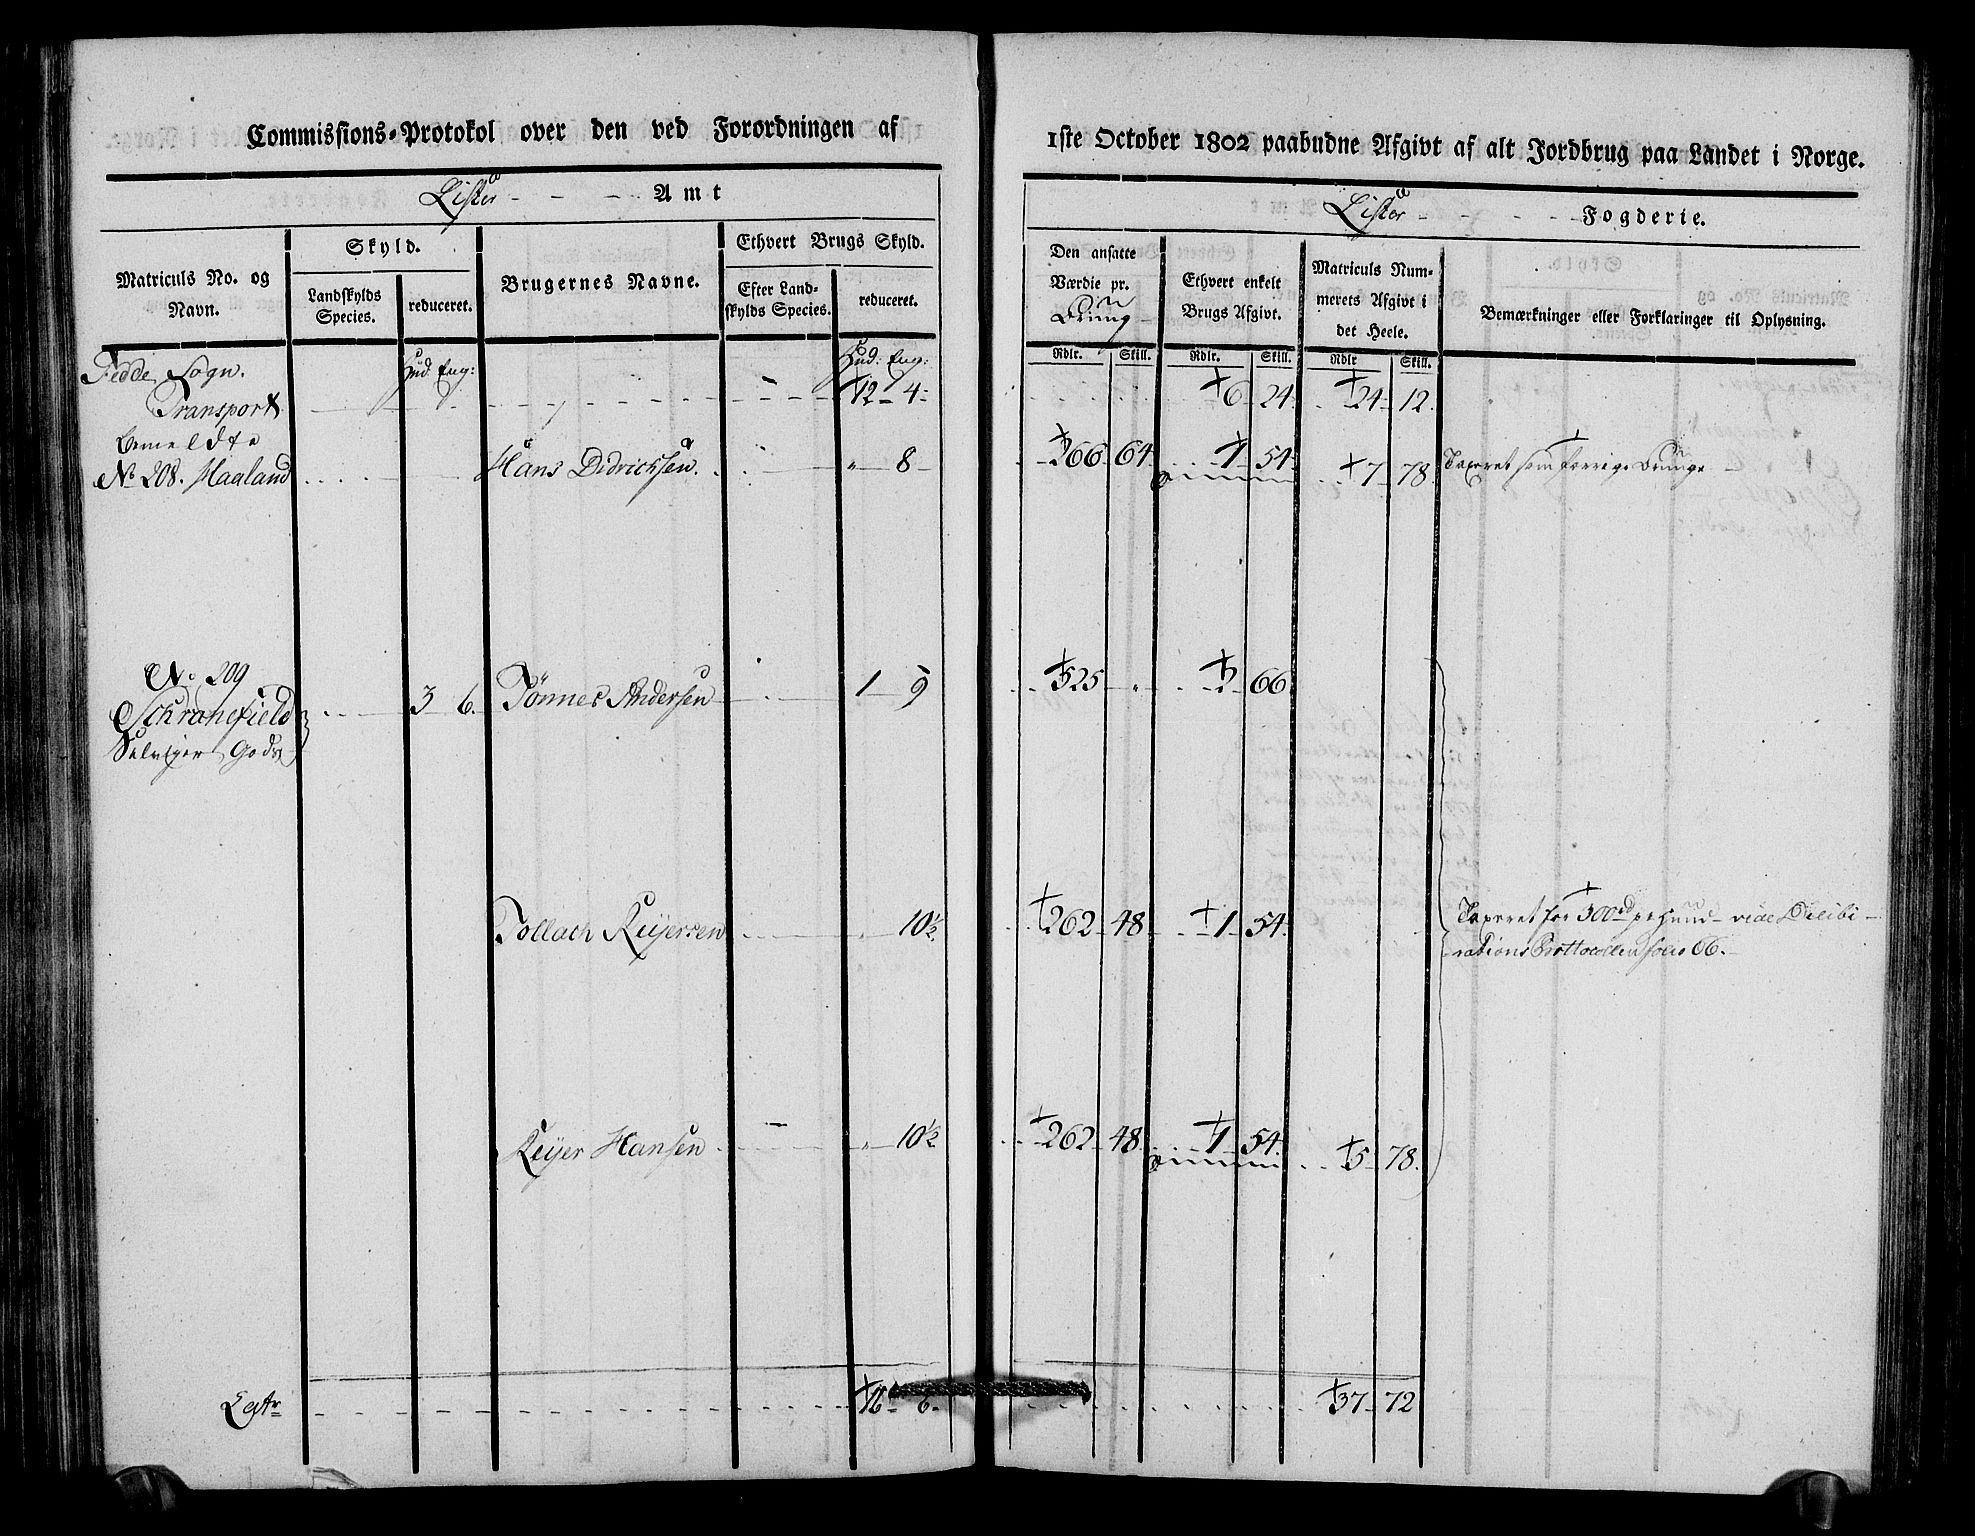 Commissions-Protokol over den ved Forordningen af
1ste October 1802 paabudne Afgivt af alt Jordbrug paa Landet i Norge.
Lister - - - Amt
Lister - - - - Fogderie.
Matriculs No. og Navn.
Skyld.
Landskylds Species.
reduceret.
Brugernes Navne.
Ethvert Brugs Skyld.
Efter Landskylds Species.
reduceret.
Den ansatte Værdie pr.
Ethvert enkelt Brugs Afgivt.
Matriculs Nummerets Afgivt i det Heele.
Bemærkninger eller Forklaringer til Oplysning.
Rdlr. Skill. Rdlr. Skill. Rdlr Skill.
Fedde Sogn. Hud Eng: Hud: Eng:
Transport 12 4 6 24 24 12
bemeldte
No 208. Haaland Hans Didrichsen. " 8 266 64 1 54 7 78 Taxeret som forrige Bruug
No. 209
Schranefield 3 6. Tönnes Andersen 1 9 525 " 2 66
Salviger Gods
Tollach Reijersen " 10½ 262 48 1 54 Taxeret for 300rd pr Huud vide Delibi-
rations Prottocollen folio 66.
Reijer Hansen " 10½ 262 48 1 54 5 78.
Latr 16 6 37 72